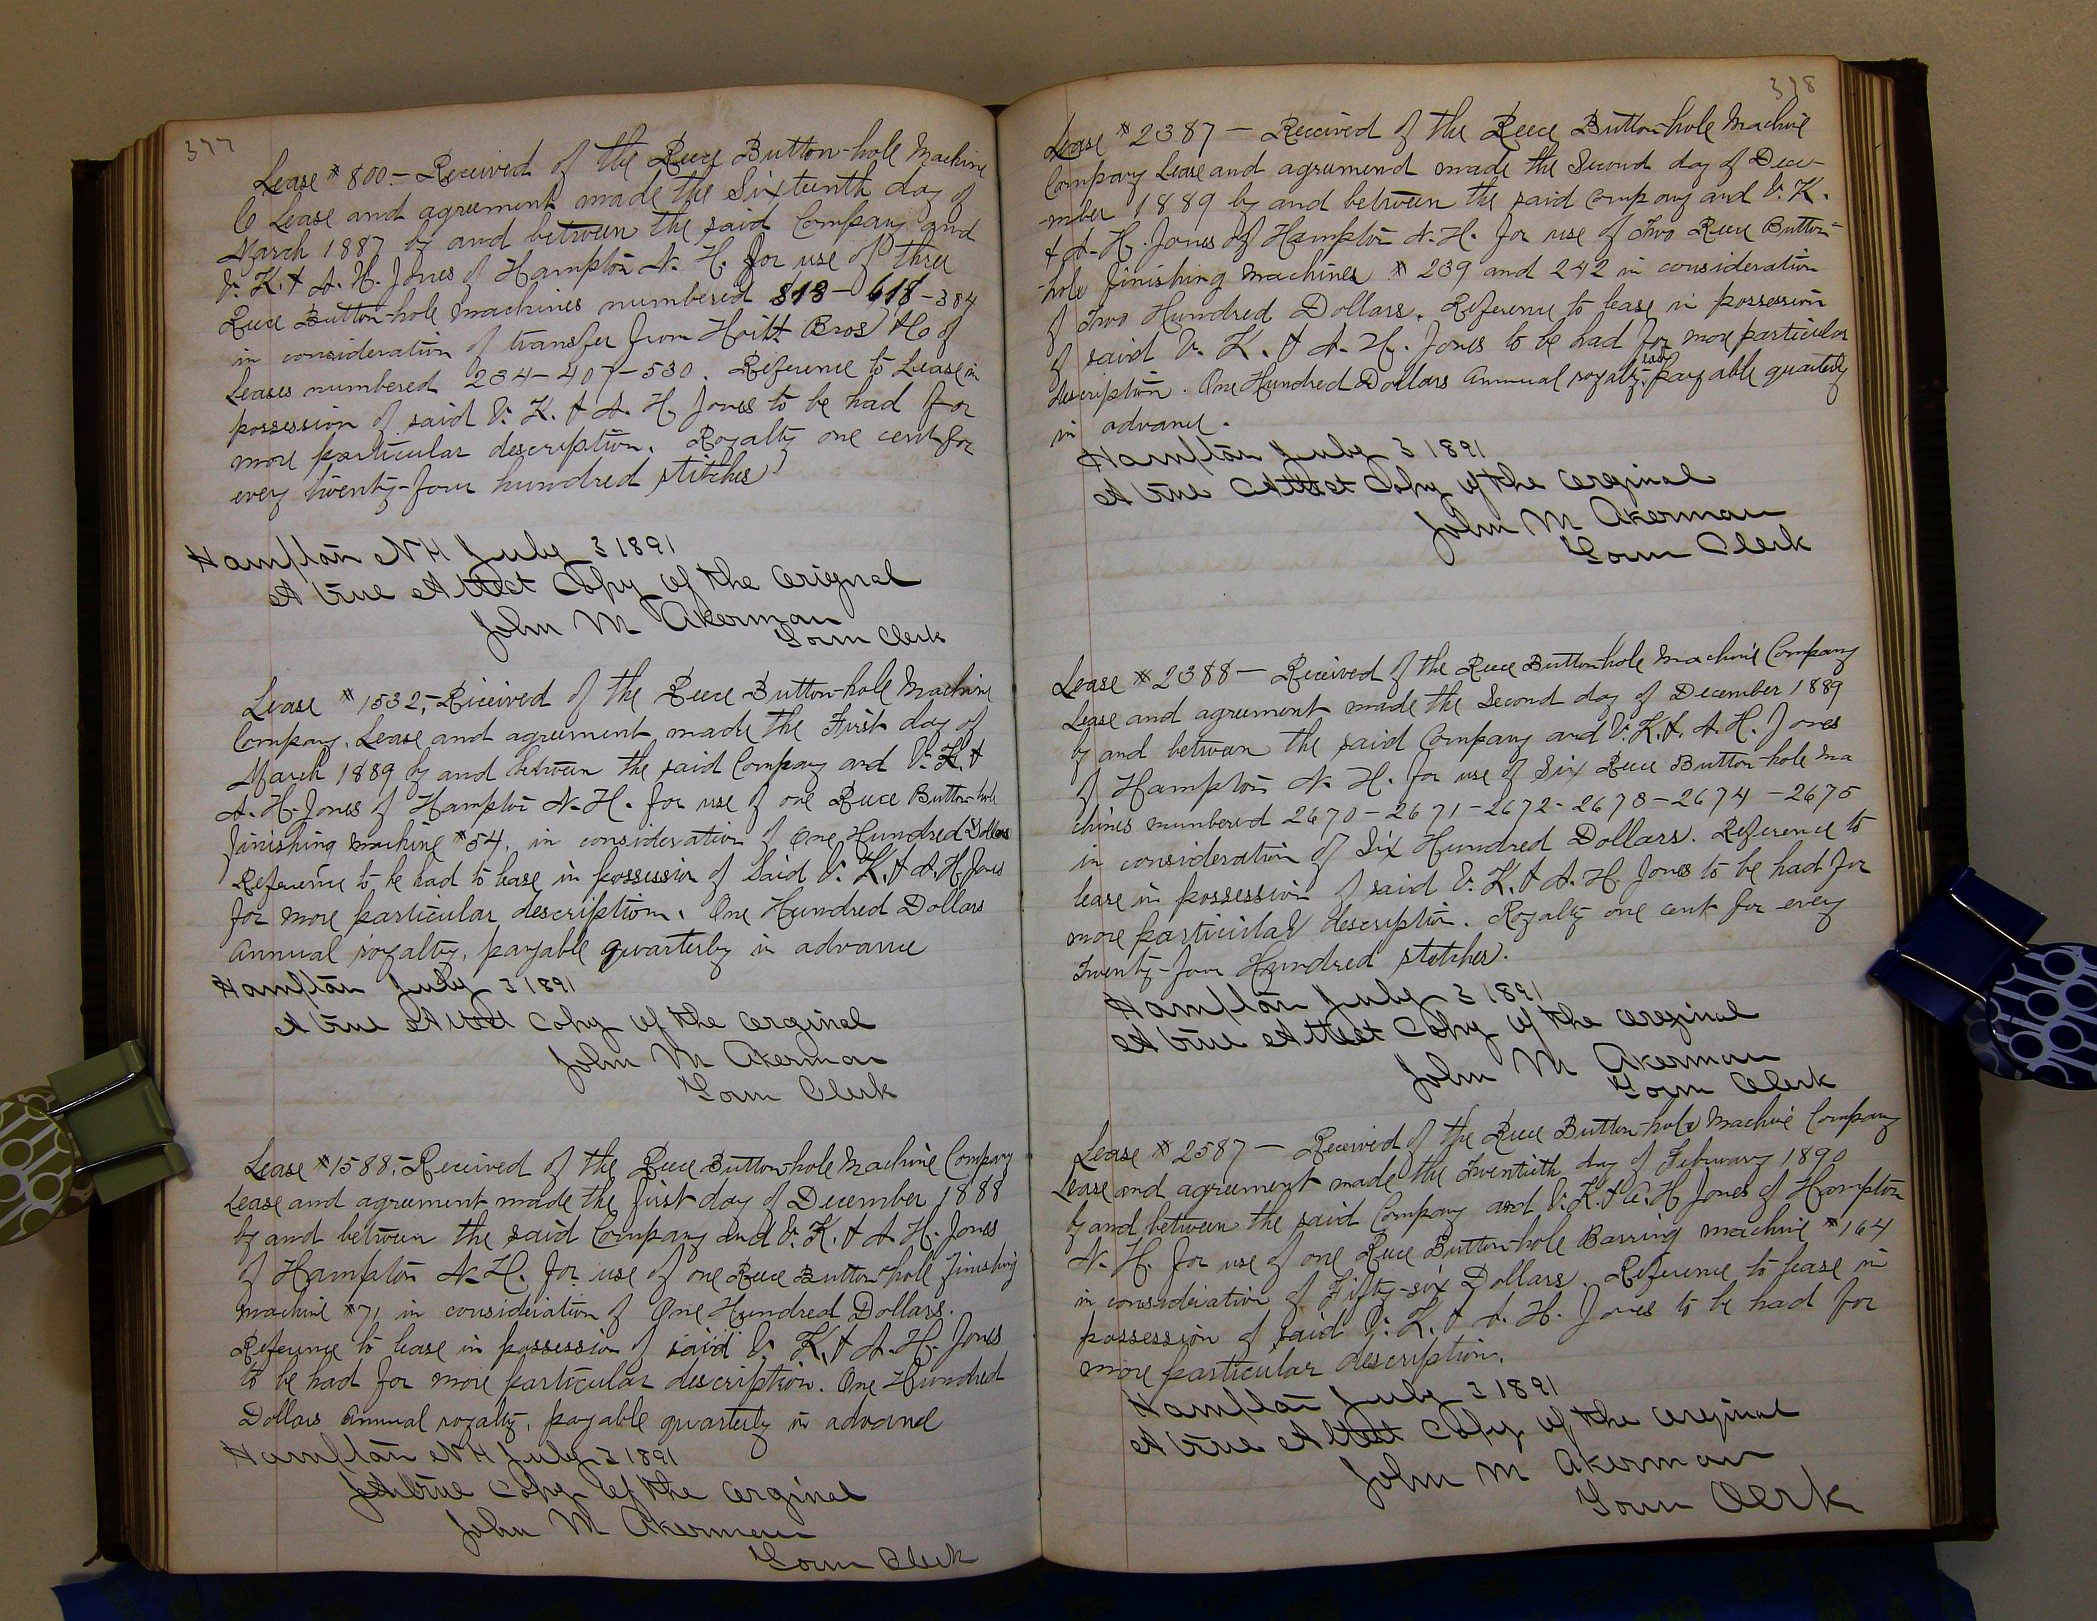 377
Lease # 800 - Received of the Reece Button-hole Machine
Co Lease and agreement made the Sixteenth day of
March 1887 by and between the said Company and
V. K. & A. H. Jones of Hampton N. H. for use of three
Reece Button-hole Machines numbered 313 - 618 - 384
in consideration of transfer from Hoitt Bros & Co of
Leases numbered 234 - 407 - 530. Reference to Lease in
possession of said V. K. & A. H. Jones to be had for
more particular description. Royalty one cent for
every twenty-four hundred stitches
Hampton N H July 3 1891
A true Attest Copy of the original
John M Akerman
Town Clerk
Lease # 1532,- Received of the Reece Button-hole Machine
Company, Lease and agreement made the First day of
March 1889 by and between the said Company and V. K. &
A. H. Jones of Hampton N. H. for use of one Reece Button-hole
finishing machine #54, in consideration of One Hundred Dollars
Reference to be had to lease in possession of Said V. K. & A. H. Jones
for more particular description. One Hundred Dollars
annual royalty, payable quarterly in advance
Hampton July 3 1891
A true Attest Copy of the orginal
John M Akerman
Town Clerk
Lease #1588,- Received of the Reece Button-hole Machine Company
Lease and agreement made the first day of December 1888
by and between the said Company and V. K. & A. H. Jones
of Hampton N. H. for use of one Reece Button-hole finishing
machine #71 in consideration of One Hundred Dollars.
Reference to lease in possession of said V. K. & A. H. Jones
to be had for more particular description. One Hundred
Dollars annual royalty, payable quarterly in advance
Hampton N H July 3 1891
A true Copy of the orginal
John M Akerman
Town Clerk
378
Lease # 2387 - Received of the Reece Button-hole Machine
Company Lease and agreement made the Second day of Dece-
-mber 1889 by and between the said Company and V. K.
& A. H. Jones of Hampton N. H. for use of Two Reece Button-
-hole finishing machines # 239 and 242 in consideration
of Two Hundred Dollars. Reference to lease in possession
of said V. K. & A. H. Jones to be had for more particular
description. One Hundred Dollars annual royalty, each payable quarterly
in advance.
Hampton July 3 1891
A true Attest Copy of the orginal
John M Akerman
Town Clerk
Lease #2388 - Received of the Reece Button-hole Machine Company
Lease and agreement made the Second day of December 1889
by and between the said Company and V. K. & A. H. Jones
of Hampton N. H. for use of Six Reece Button-hole Ma
chines numbered 2670 - 2671 - 2672 - 2673 - 2674 - 2675
in consideration of Six Hundred Dollars. Reference to
lease in possession of said V. K. & A. H. Jones to be had for
more particular description. Royalty one cent for every
Twenty-four Hundred stitches.
Hampton July 3 1891
A true Attest Copy of the orginal
John M Akerman
Town Clerk
Lease # 2587 - Received of the Reece Button-hole Machine Company
Lease and agreement made the Twentieth day of February 1890
by and between the said Company and V. K. & A. H. Jones of Hampton
N. H. for use of one Reece Button-hole Barring machine #164
in consideration of Fifty-six Dollars. Reference to lease in
possession of said V. K. & A. H. Jones to be had for
more particular description.
Hampton July 3 1891
A true Attest Copy of the orginal
John M Akerman
Town Clerk